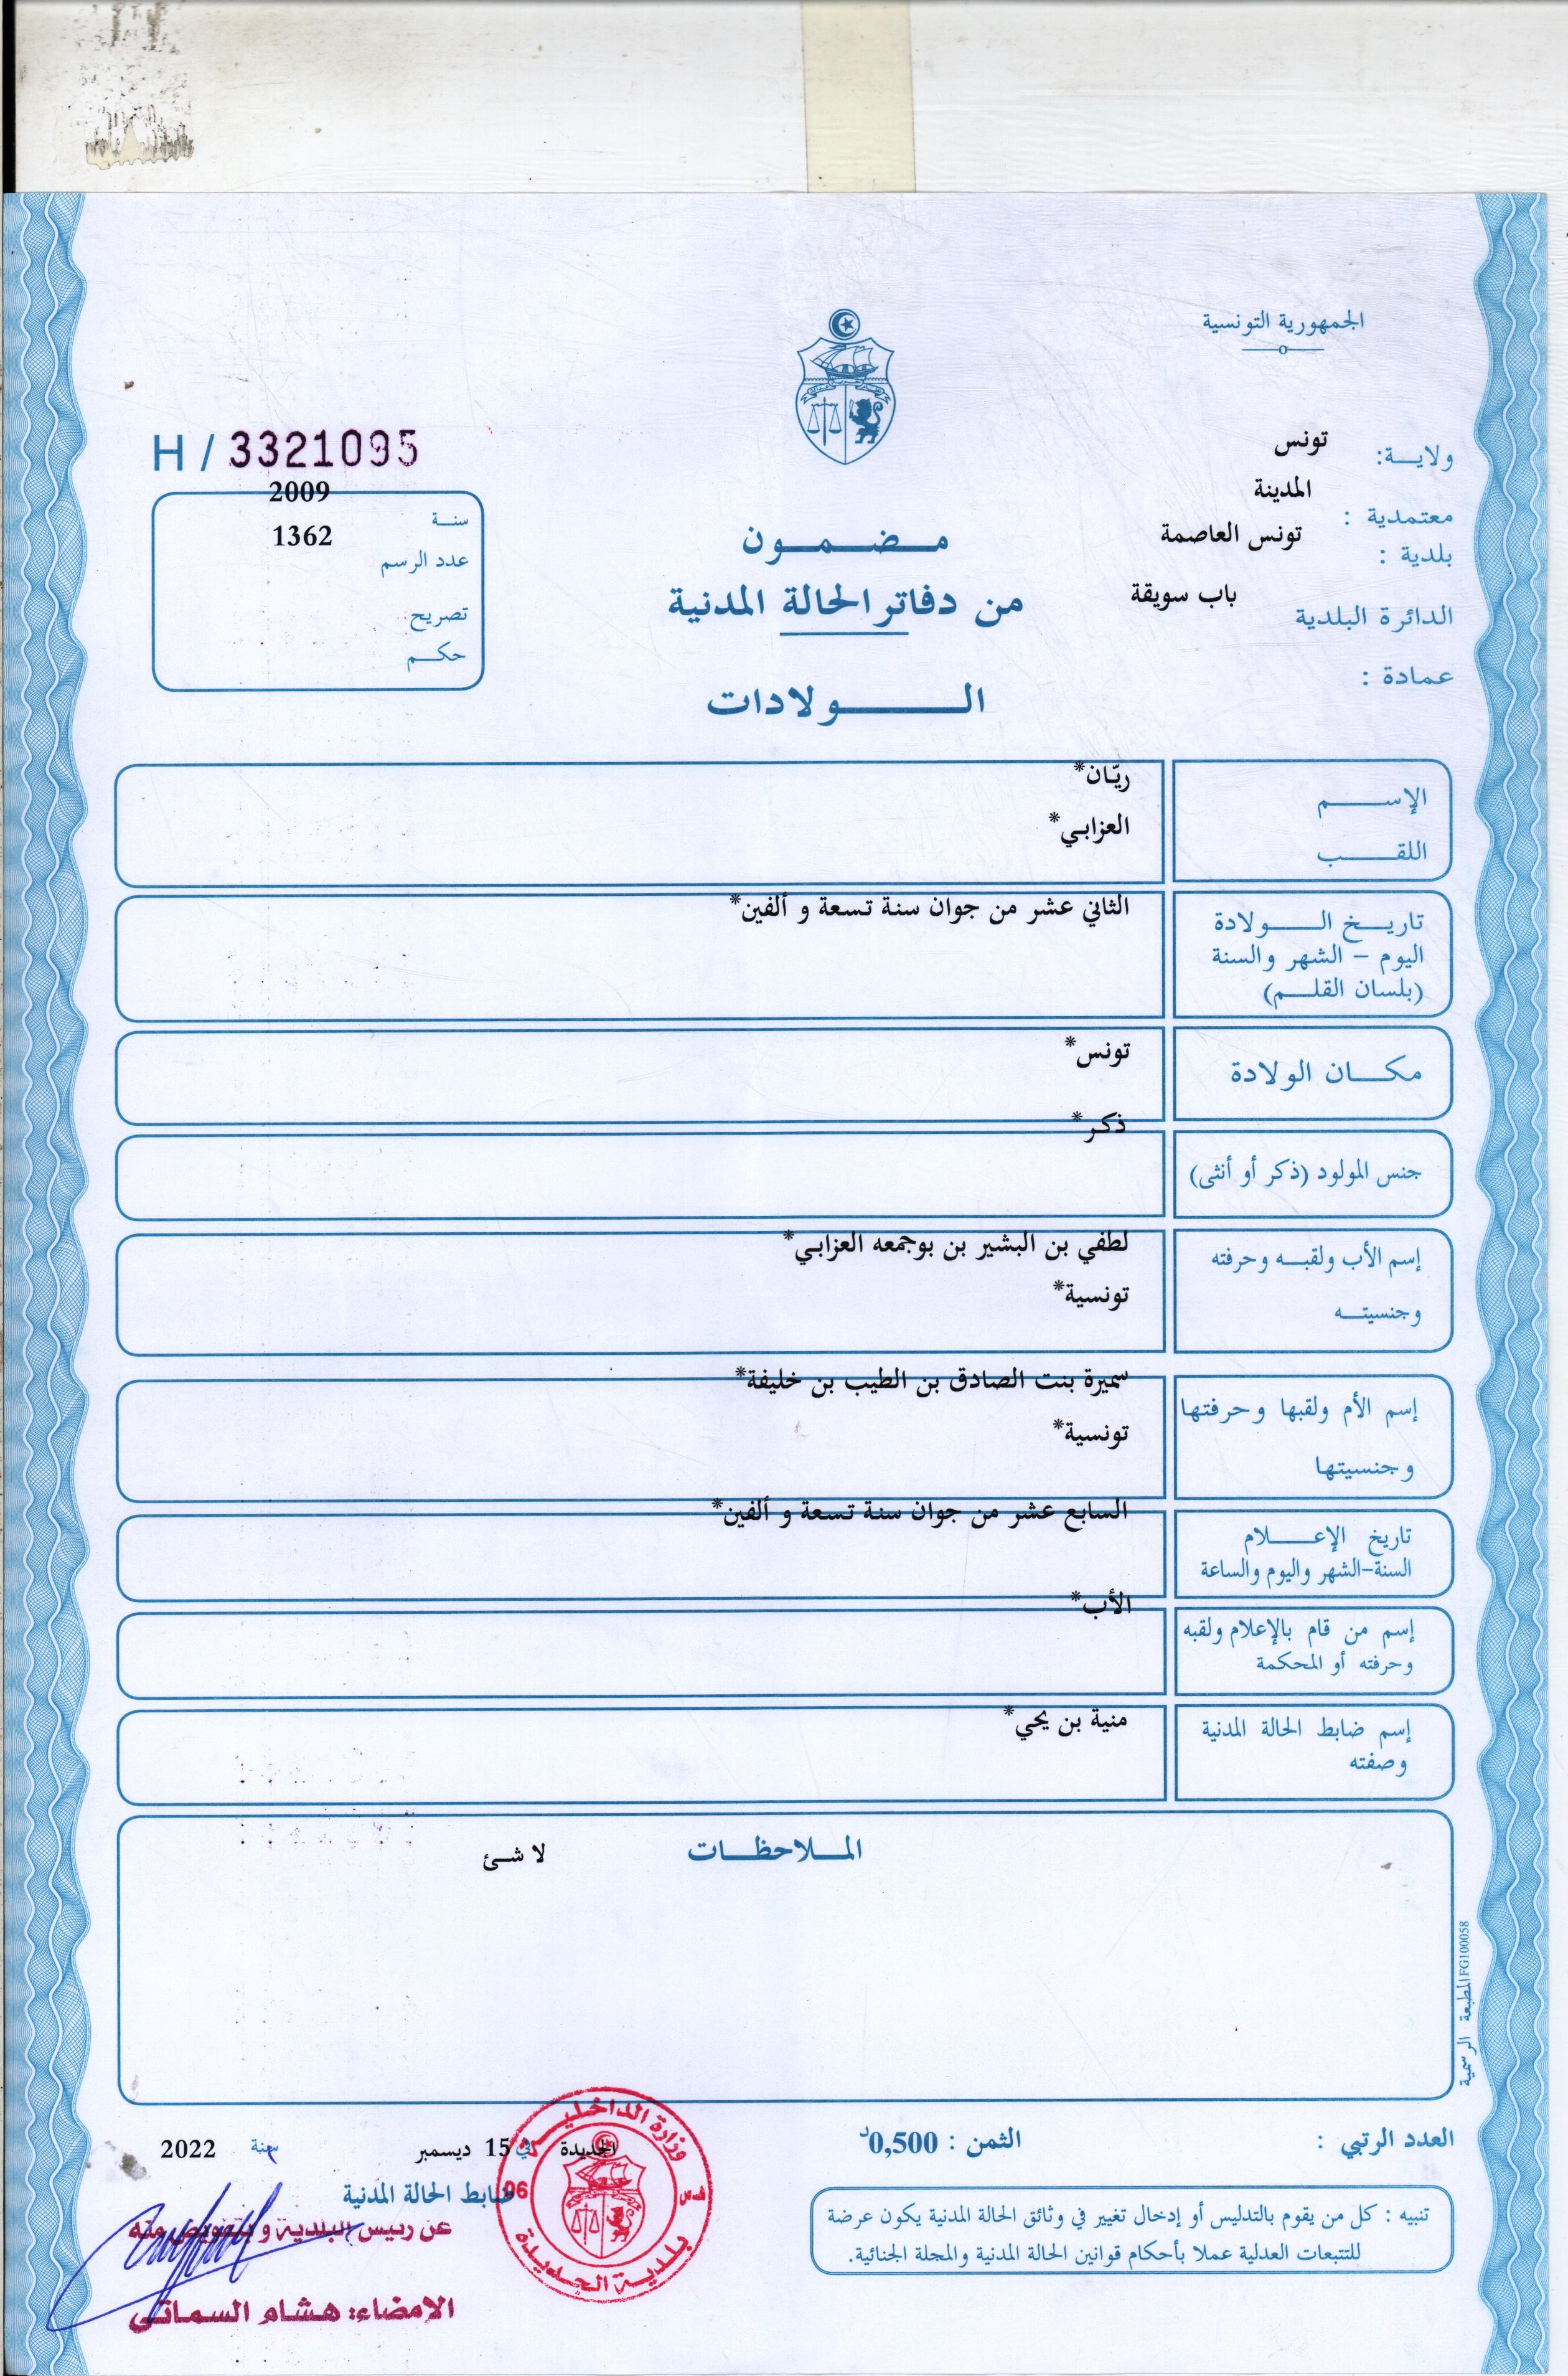 الجمهورية التونسية
ولايـــة: تونس
معتمدية : المدينة
بلدية : تونس العاصمة
الدائرة البلدية باب سويقة
عمادة :
H / 3321095
سنــة 2009
عدد الرسم 1362
تصريح
حكــم
مــضــمــون
من دفاتر الحالة المدنية
الــــولادات
الإســـــم ريّان*
اللقــــب العزابي*
تاريــخ الـــــولادة الثاني عشر من جوان سنة تسعة و ألفين*
اليوم – الشهر والسنة
(بلسان القلــم)
مكـــان الولادة تونس*
جنس المولود (ذكر أو أنثى) ذكر*
إسم الأب ولقبــه وحرفته لطفي بن البشير بن بوجمعه العزابي*
وجنسيتــه تونسية*
إسم الأم ولقبها وحرفتها سميرة بنت الصادق بن الطيب بن خليفة*
وجنسيتها تونسية*
تاريخ الإعـــــلام السابع عشر من جوان سنة تسعة و ألفين*
السنة-الشهر واليوم والساعة
إسم من قام بالإعلام ولقبه الأب*
وحرفته أو المحكمة
إسم ضابط الحالة المدنية منية بن يحي*
وصفته
المــلاحظــات لا شئ
المطبعة الرسمية FG100058
العدد الرتبي :
الثمن : 0,500د
الجديدة في 15 ديسمبر سنة 2022
ضابط الحالة المدنية
عن رئيس البلدية و بتفويض منه
الامضاء: هشام السماتي
وزارة الداخلية
06
بلدية الجديدة
تنبيه : كل من يقوم بالتدليس أو إدخال تغيير في وثائق الحالة المدنية يكون عرضة
للتتبعات العدلية عملا بأحكام قوانين الحالة المدنية والمجلة الجنائية.